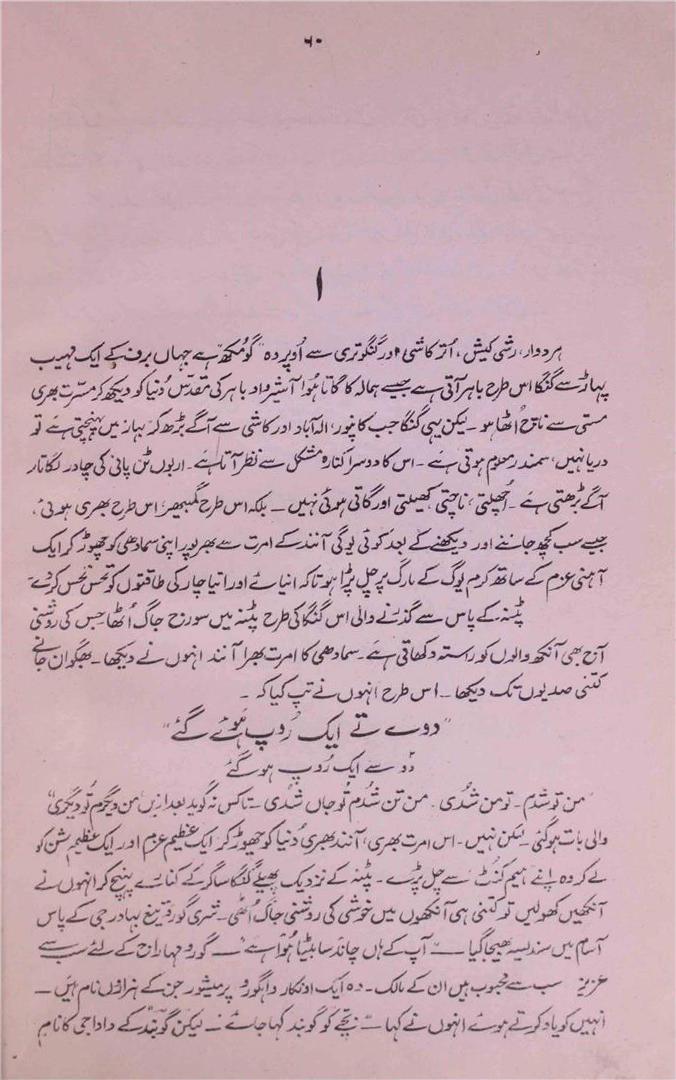 ۶۰
۱
ہردوار، رشی کیش، اُتر کاشی اور گنگوتری سے اُوپر وہ "گومُکھ" ہے جہاں برف کے ایک مہیب
پہاڑ سے گنگا اس طرح باہر آتی ہے جیسے ہمالہ کا گاتا ہُوا آشیرواد باہر کی مقدّس دُنیا کو دیکھ کر مسّرت بھری
مستی سے ناچ اُٹھا ہو۔ لیکن یہی گنگا جب کانپور، الہ آباد اور کاشی سے آگے بڑھ کر بہار میں پہنچتی ہے تو
دریا نہیں، سمندر معلوم ہوتی ہے۔ اس کا دوسرا کنارہ مشکل سے نظر آتا ہے۔ اربوں ٹن پانی کی چادر لگاتار
آگے بڑھتی ہے۔ اُچھلتی، ناچتی، کھیلتی اور گاتی ہوئی نہیں۔ بلکہ اس طرح گمبھیر، اس طرح بھری ہوئی،
جیسے سب کچھ جاننے اور دیکھنے کے بعد کوئی یوگی آنند کے امرت سے بھرپور اپنی سمادھی کو چھوڑ کر ایک
آہنی عزم کے ساتھ کرم یوگ کے مارگ پر چل پڑا ہو تاکہ انیائے اور اتیاچار کی طاقتوں کو تحس نحس کر دے
پٹنہ کے پاس سے گذرنے والی اس گنگا کی طرح پٹنہ میں سورج جاگ اُٹھا جس کی روشنی
آج بھی آنکھ والوں کو راستہ دکھاتی ہے۔ سمادھی کا امرت بھرا آنند انہوں نے دیکھا۔ بھگوان جانے
کتنی صدیوں تک دیکھا۔ اس طرح انہوں نے تپ کیا کہ۔
"دوے تے ایک رُوپ ہوئے گئے"
دو سے ایک رُوپ ہو گئے
"من تو شدم۔ تو من شُدی۔ من تن شُدم تُو جاں شُدی۔ تاکس نہ گوید بعد ازیں من دیگرم تُو دیگری"
والی بات ہو گئی۔ لیکن نہیں۔ اس امرت بھری، آنند بھری دُنیا کو چھوڑ کر ایک عظیم عزم اور ایک عظیم مشن کو
لے کر وہ اپنے ہیم کُنٹ سے چل پڑے۔ پٹنہ کے نزدیک پھیلے گنگا ساگر کے کنارے پہنچ کر انہوں نے
آنکھیں کھولیں تو کتنی ہی آنکھوں میں خوشی کی روشنی جاگ اُٹھی۔ شری گورو تیغ بہادر جی کے پاس
آسام میں سندیسہ بھیجا گیا۔ آپ کے ہاں چاند سا بیٹا ہُوا ہے۔ گورو مہاراج کے لئے سب سے
عزیز سب سے محبوب ہیں ان کے مالک۔ وہ ایک اونکار واہگورو پرمیشور جن کے ہزاروں نام ہیں۔
انہیں کو یاد کرتے ہوئے انہوں نے کہا۔ بچّے کو گوبند کہا جائے۔ لیکن گوبند کے دادا جی کا نام